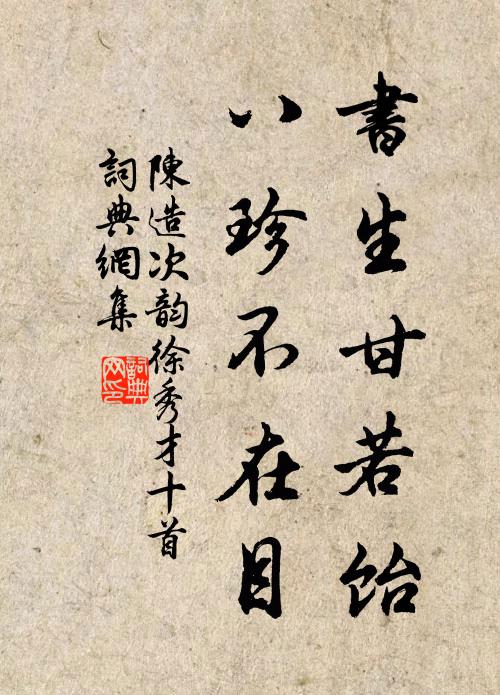 書生甘若飴
八珍不在目
陳造次韵徐秀才十首
詞典網集
詞典網印